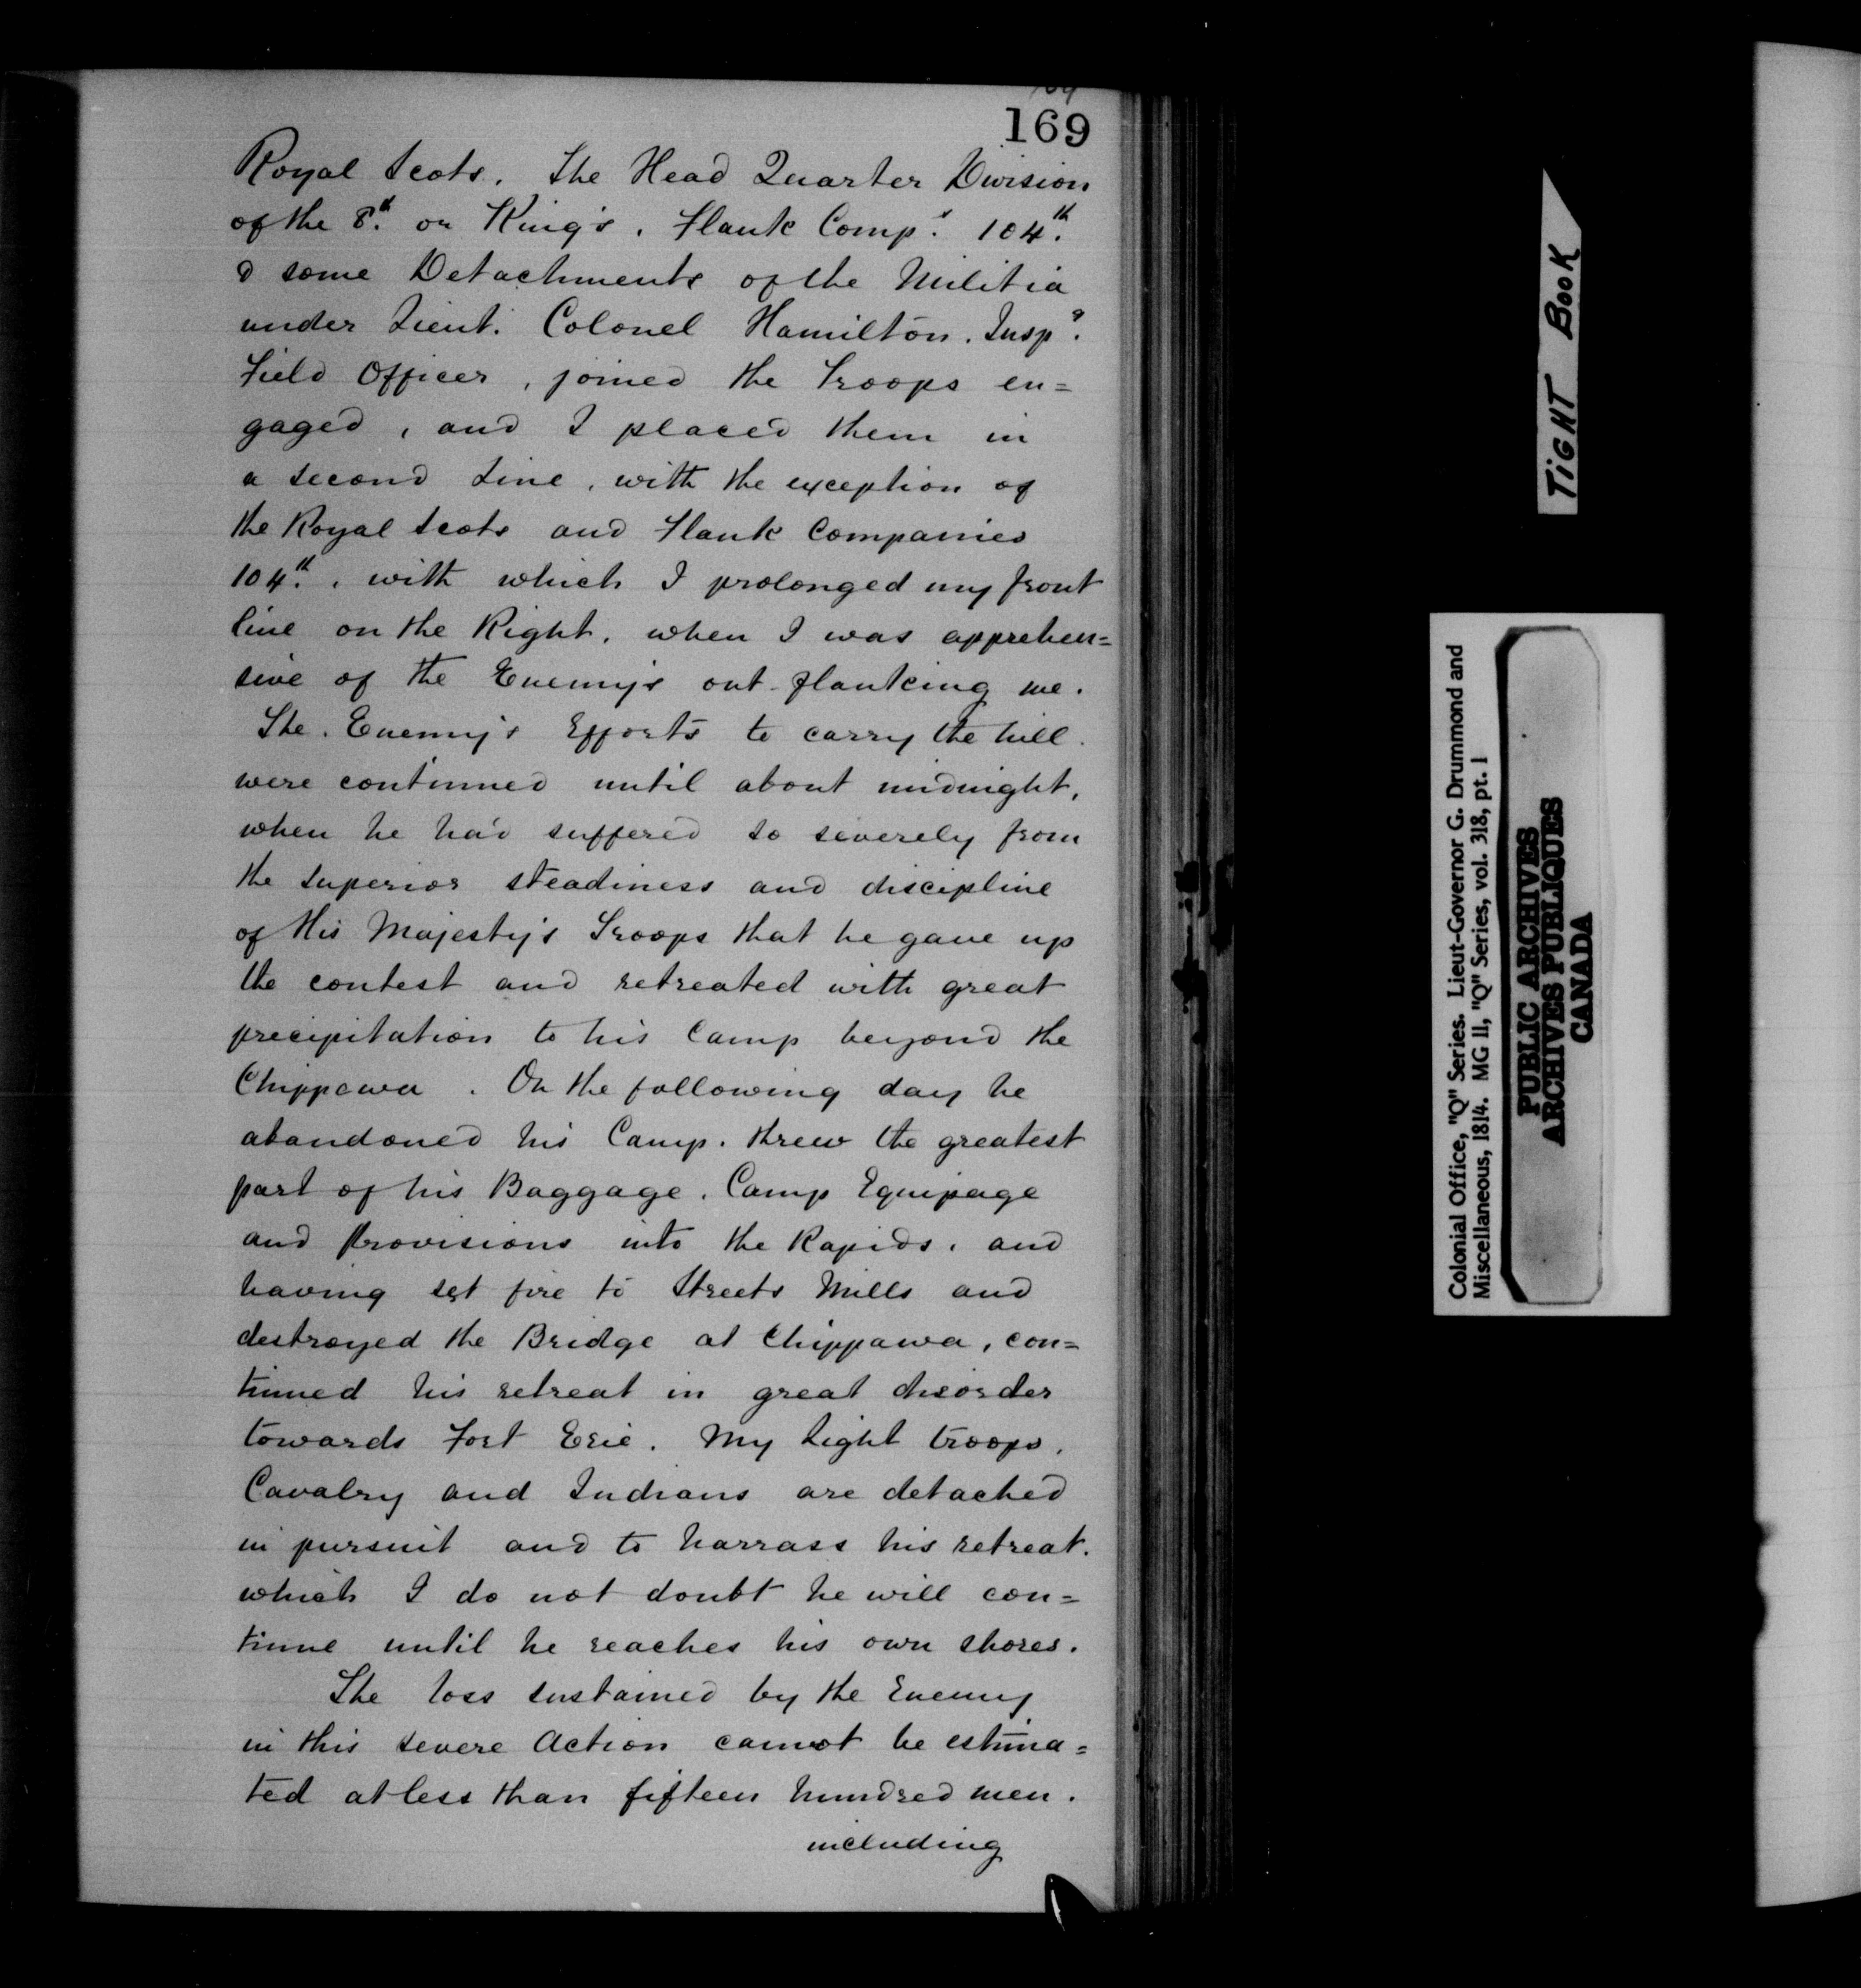 169
Royal Scots. The Head Quarter Division
of the 8.th or King's, Flank Comp.s 104.th
& some Detachments of the Militia
under Lieut. Colonel Hamilton. Insp.g
Field Officer, joined the Troops en=
gaged, and I placed them in
a second Line, with the exception of
the Royal Scots and Flank Companies
104.th, with which I prolonged my front
line on the Right, when I was apprehen=
sive of the Enemy's out-flanking me.
The Enemy's Efforts to carry the hill
were continued until about midnight,
when he had suffered so severely from
the superior steadiness and discipline
of His Majesty's Troops that he gave up
the contest and retreated with great
precipitation to his Camp beyond the
Chippawa. On the following day he
abandoned his Camp, threw the greatest
part of his Baggage, Camp Equipage
and Provisions into the Rapids, and
having set fire to Streets Mills and
destroyed the Bridge at Chippawa, con=
tinued his retreat in great disorder
towards Fort Erie. My Light troops,
Cavalry and Indians are detached
in pursuit and to harrass his retreat.
which I do not doubt he will con=
tinue until he reaches his own shores.
The loss sustained by the Enemy
in this severe Action cannot be estima=
ted at less than fifteen hundred men.
including
TIGHT BOOK
Colonial Office, "Q" Series. Lieut-Governor G. Drummond and
Miscellaneous, 1814. MG 11, "Q" Series, vol. 318, pt. 1
PUBLIC ARCHIVES
ARCHIVES PUBLIQUES
CANADA